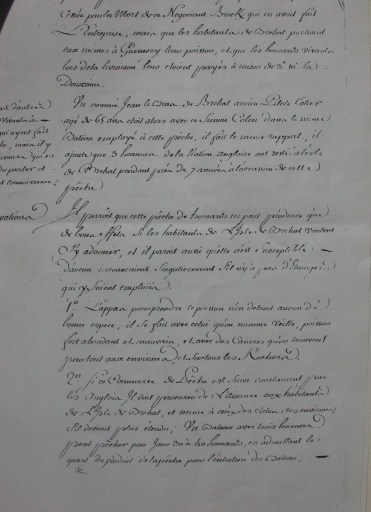 par la Mort de ce Negociant Brock qui en avoit fait
l'entreprise, mais que les habitants de Brehat portoient
eux mêmes à Guernesey leur poisson, et que les homards vivants
lors de la livraison leur etoient payés à raison de 3# la
Douzaine.
Un nommé Jean le de Brehat ancien Pilote Cotier
agé de 61 ans etoit alors avec ce Simon dans le meme
Bateau employé à cette pêche, il fait le meme rapport, il
ajoute que 3 hommes de la Nation angloise ont resté à l'isle
de Brehat pendant près de 7 années à l'occasion de cette
pêche
Il paroit que cette pêche de homards ne peut produire que
de bons effets si les habitants de l'Isle de Brehat veulent
s'y adonner, et il paroit aussi qu'elle n'est susceptible
d'aucun inconvenient singulierement s'il n'y a pas d'Etrangers
qui y soient employés.
1° L'appas pour prendre ce poisson n'en detruit aucun d'
bonne espece, il se fait avec celui qu'on nomme Vieille, poisson
fort abondant et mauvais, et avec des Cancres qu'on trouve
partout aux environs et surtout les Rochers.
2° Si ce Commerce de Pêche est suivi constament par
les anglois Il doit procurer de l'aisance aux habitants
de l'Isle de Brehat, et meme à ceux des environs
s'il devient plus étendu; Un Bateau avec trois hommes
peut pêcher par jour 30 à homards, en admettant le
quart du produit de la pêche pour l'entretien du Bateau,